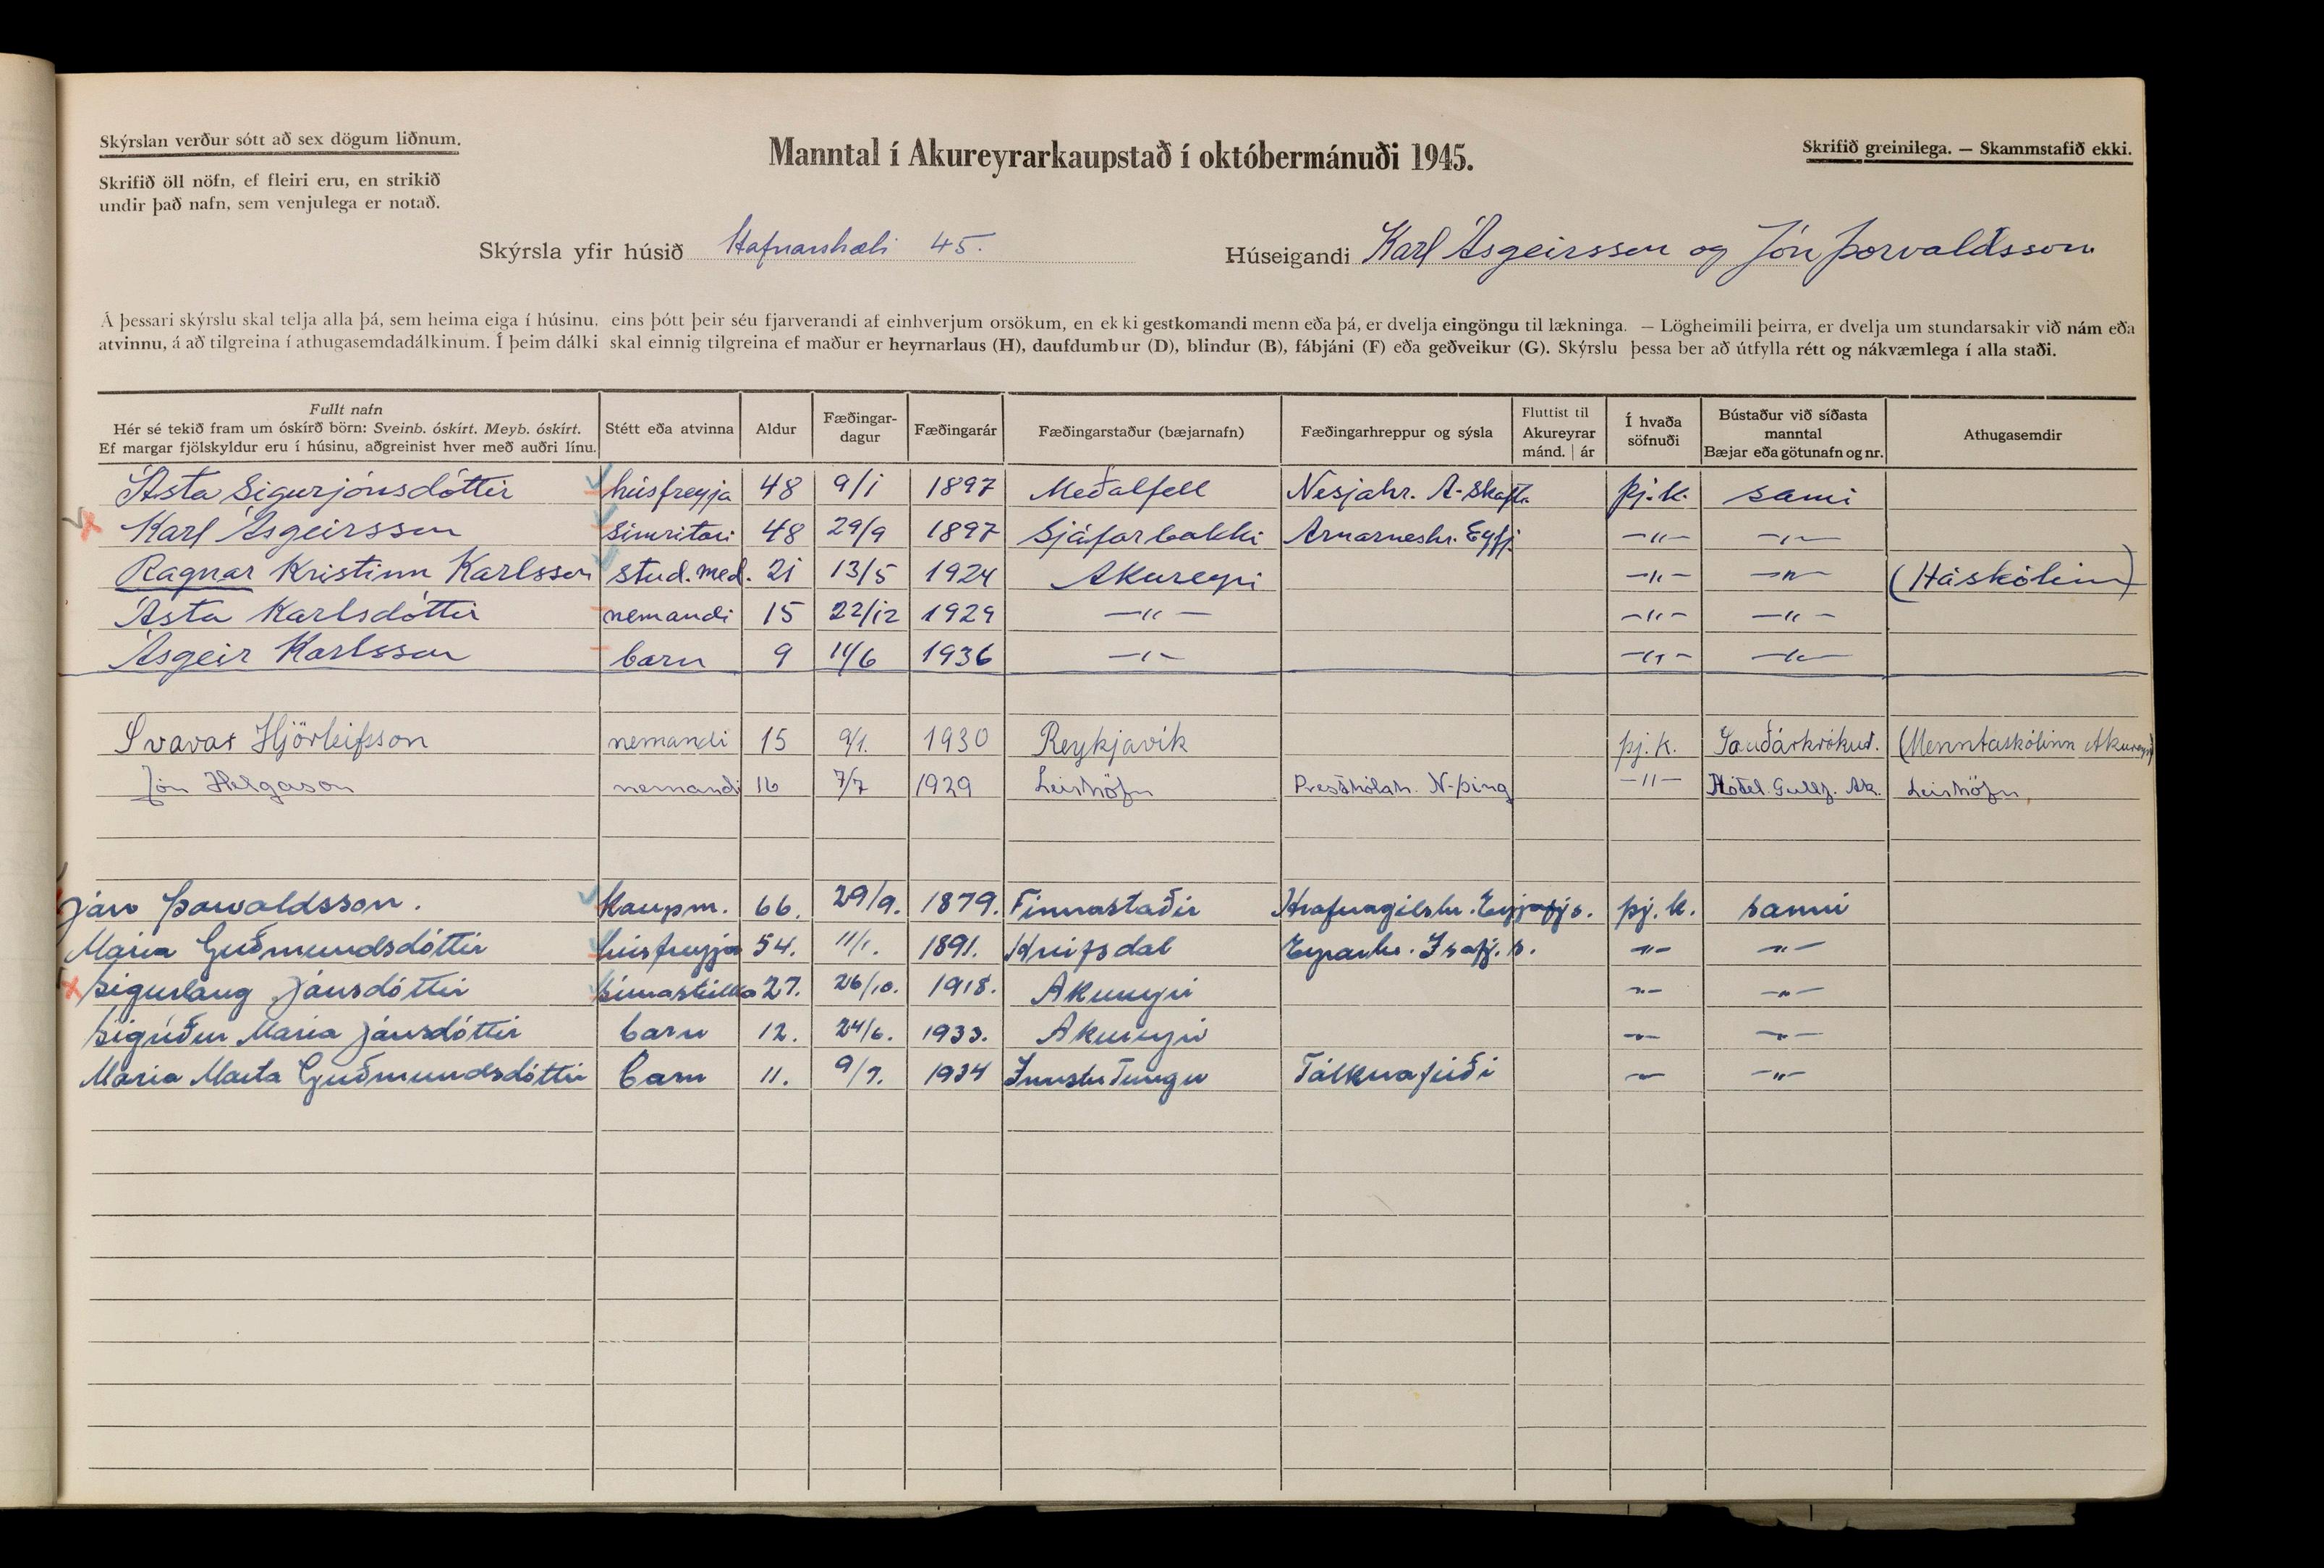 Skýrslan verður sótt að sex dögum liðnum.
Skrifið öll nöfn, ef fleiri eru, en strikið
undir það nafn, sem venjulega er notað.
Manntal í Akureyrarkaupstað í októbermánuði 1945.
Skrifið greinilega. — Skammstafið ekki.
Skýrsla yfir húsið Hafnarstræti 45. Húseigandi Karl Ásgeirsson og Jón Þorvaldsson
Á þessari skýrslu skal telja alla þá, sem heima eiga í húsinu, eins þótt þeir séu fjarverandi af einhverjum orsökum, en ekki gestkomandi menn eða þá, er dvelja eingöngu til lækninga. — Lögheimili þeirra, er dvelja um stundarsakir við nám eða
atvinnu, á að tilgreina í athugasemdadálkinum. Í þeim dálki skal einnig tilgreina ef maður er heyrnarlaus (H), daufdumbur (D), blindur (B), fábjáni (F) eða geðveikur (G). Skýrslu þessa ber að útfylla rétt og nákvæmlega í alla staði.
Fullt nafn
Hér sé tekið fram um óskírð börn: Sveinb. óskírt. Meyb. óskírt.
Ef margar fjölskyldur eru í húsinu, aðgreinist hver með auðri línu.
Stétt eða atvinna
Aldur
Fæðingar-
dagur
Fæðingarár
Fæðingarstaður (bæjarnafn)
Fæðingarhreppur og sýsla
Fluttist til
Akureyrar
mánd. | ár
Í hvaða
söfnuði
Bústaður við síðasta
manntal
Bæjar eða götunafn og nr.
Athugasemdir
Ásta Sigurjónsdóttir húsfreyja 48 9/1 1897 Meðalfell Nesjahr. A-Skaft. þj.k. sami
Karl Ásgeirsson símritari 48 29/9 1897 Sjáfarbakki Arnarneshr. Eyfj. —〃— —〃—
Ragnar Kristinn Karlsson stud. med. 21 13/5 1924 Akureyri —〃— —〃— (Háskólinn)
Ásta Karlsdóttir nemandi 15 22/12 1929 —〃— —〃— —〃—
Ásgeir Karlsson barn 9 14/6 1936 —〃— —〃— —〃—
Svavar Hjörleifsson nemandi 15 9/1. 1930 Reykjavík þj.k. Sauðárkrókur. (Menntaskólinn Akureyri)
Jón Helgason nemandi 16 7/7 1929 Leirhöfn Presthólah. N-þing —〃— Hótel. Gullf. Ak. Leirhöfn
Jón Þorvaldsson. Kaupm. 66. 29/9. 1879. Finnastaðir Hrafnagilshr. Eyjafjs. þj.k. sami
María Guðmundsdóttir húsfreyja 54. 11/1. 1891. Hnífsdal Eyrarhr. Ísafj.s. —〃— —〃—
Sigurlaug Jónsdóttir símastúlka 27. 26/10. 1918. Akureyri —〃— —〃—
Sigríður María Jónsdóttir barn 12. 24/6. 1933. Akureyri —〃— —〃—
María Marta Guðmundsdóttir barn 11. 9/7. 1934 Innstu Tungu Tálknafirði —〃— —〃—